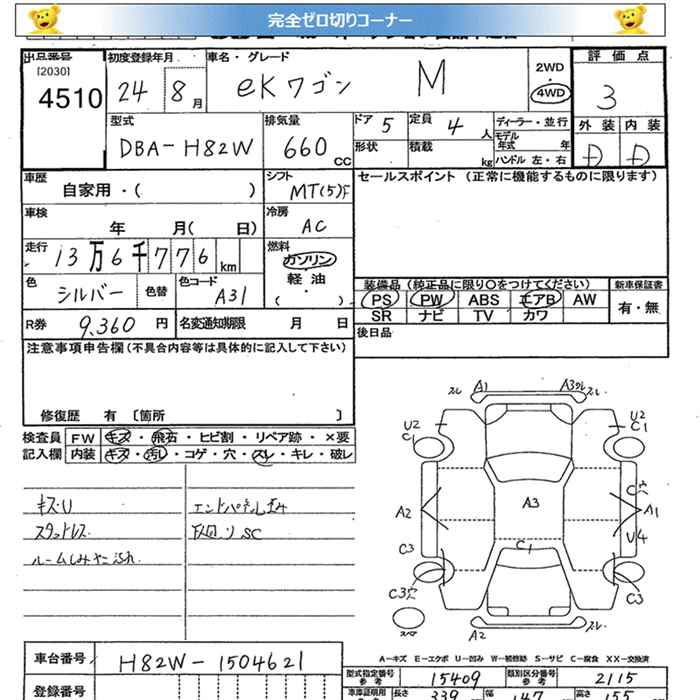 完全ゼロ切りコーナー
出品番号 初度登録年月 車名・グレード 評価点
[2030]
4510 24 8月 eKワゴン M 2WD 4WD 3
型式 排気量 ドア 5 定員 4人 ディーラー・並行 外装 内装
DBA-H82W 660cc 形状 積載 kg モデル年式 年 ハンドル 左・右 D D
車歴 シフト セールスポイント (正常に機能するものに限ります)
自家用・( ) MT(5)F
車検 年 月( 日) 冷房 AC
走行 13万6千776km 燃料 ガソリン
軽油
( )
色 シルバー 色替 色コード A31
装備品 (純正品に限り〇をつけてください) 新車保証書
PS PW ABS エアB AW 有・無
SR ナビ TV カワ
R券 9,360円 名変通知期限 月 日 後日品
注意事項申告欄 (不具合内容等は具体的に記入して下さい)
修復歴 有 〔箇所 〕
検査員 FW キズ・飛石・ヒビ割・リペア跡・×要
記入欄 内装 キズ・汚れ・コゲ・穴・スレ・キレ・破レ
キズ・U エンドパネルしずみ
スタッドレス 下回り、SC
ルームしみヤニ汚れ
スレ A1 A3 スレ
U2 C1 U2 C1
A2 A3 C穴 A1
C3 C1 U4
C3穴 C3
スペア A2 スレ
A-キズ E-エクボ U-凹み W-補修跡 S-サビ C-腐食 XX-交換済
車台番号 H82W-1504621
型式指定番号 参考 15409 類別区分番号 参考 2115
登録番号 車庫証明用 長さ 339 幅 147 高さ 155